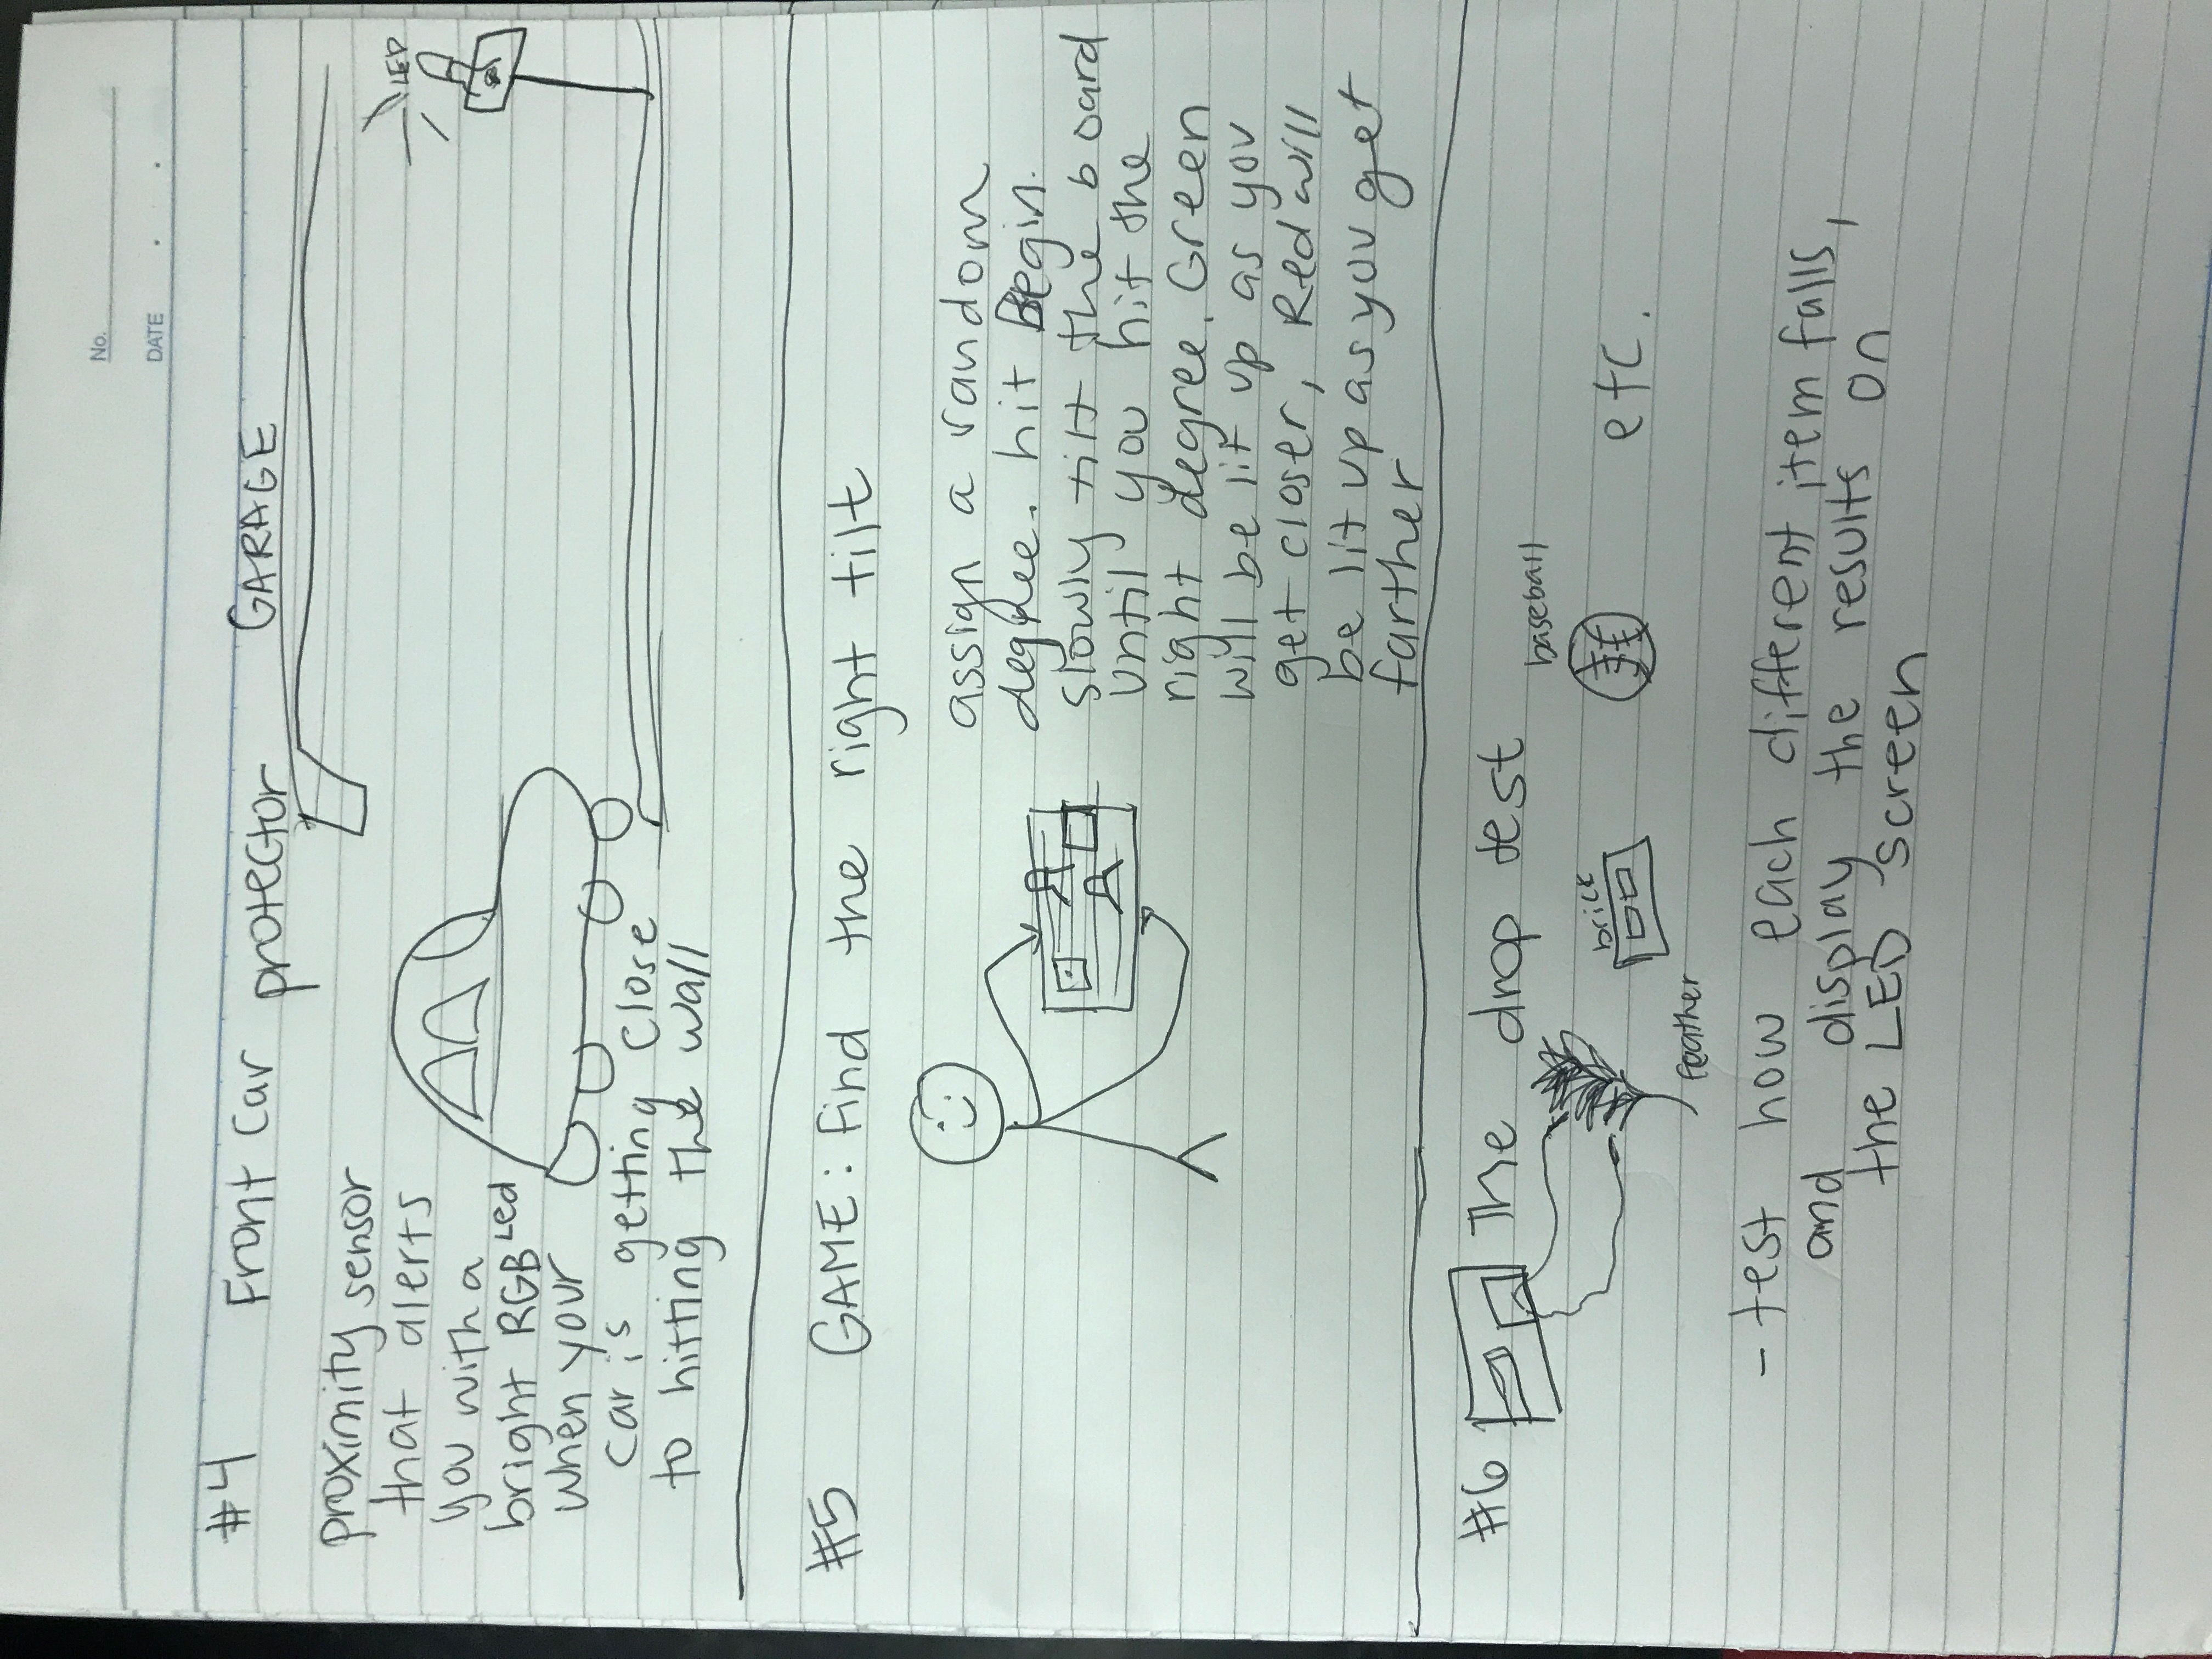 No.
DATE
#4 Front Car protector
GARAGE
proximity sensor
that alerts
you with a
bright RGB Led
when your
car is getting close
to hitting the wall
LED
#5 GAME: Find the right tilt
assign a random
degree. hit Begin.
slowly tilt the board
until you hit the
right degree. Green
will be lit up as you
get closer, Red will
be lit up as you get
farther
#6 The drop test
feather
brick
baseball
etc.
- test how each different item falls,
and display the results on
the LED screen